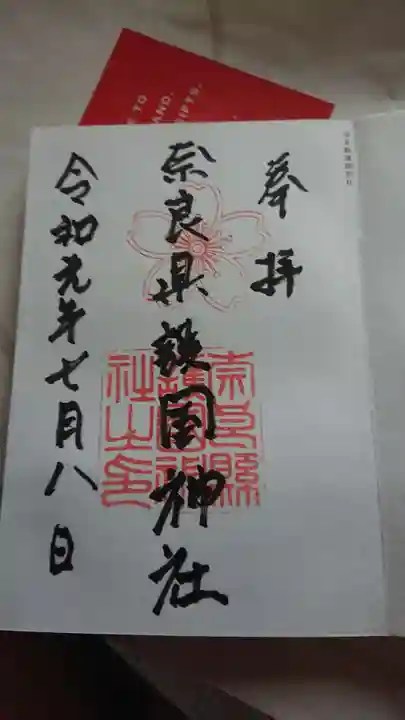 奉拝
奈良県護国神社
令和元年七月八日
奈良縣護國神社之印